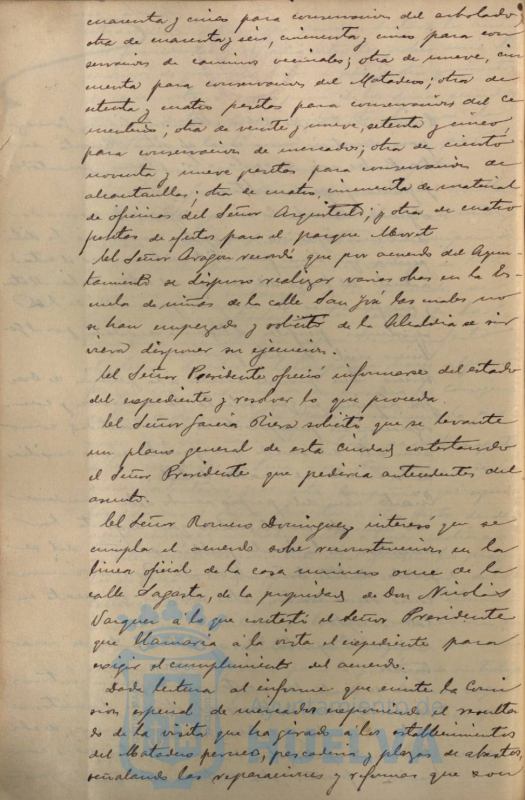 cuarenta y cinco para conservacion del arbolado,
otra de cuarenta y seis, cincuenta y cinco para con
servacion de caminos vecinales; otra de nueve, cin
cuenta para conservacion del Matadero; otra de
setenta y cuatro pesetas para conservacion del Ce
menterio; otra de veinte y nueve, setenta y cinco,
para conservacion de mercados; otra de ciento
noventa y nueve pesetas para conservacion de
alcantarillas; otra de cuatro, cincuenta de material
de oficinas del Señor Arquitecto; y otra de cuatro
pesetas de efectos para el parque Moret.
El Señor Aragon recordó que por acuerdo del Ayun-
tamiento se dispuso realizar varias obras en la Es-
cuela de niñas de la calle San José las cuales no
se han empezado y solicitó de la Alcaldia se sir
viera disponer su ejecucion.
El Señor Presidente ofreció informarse del estado
del expediente y resolver lo que proceda.
El Señor Garcia Riera solicitó que se levante
un plano general de esta ciudad contestando
el Señor Presidente que pediria antecedentes del
asunto.
El Señor Romero Dominguez interesó que se
cumpla el acuerdo sobre reconstruccion en la
linea oficial de la casa numero once de la
calle Sagasta, de la propiedad de Don Nicolás
Vazquez á lo que contestó el Señor Presidente
que llamaria á la vista el expediente para
exigir el cumplimiento del acuerdo.
Dada lectura al informe que emite la Comi
sion especial de mercados exponiendo el resulta
do de la visita que ha girado á los establecimientos
del Matadero, pescaderia y plazas de abastos,
señalando las reparaciones y reformas que son